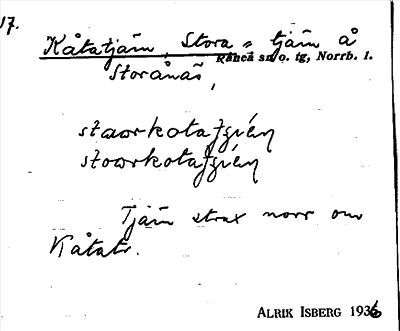 17.
Kåtatjärn, Stora = tjärn å
Råneå sn o. tg, Norrb. l.
Storånäs,
Tjärn strax norr om
Kåtatr.
ALRIK ISBERG 1936